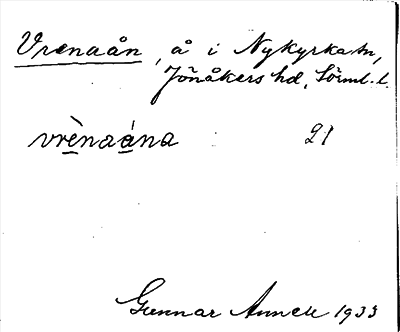 Vrenaån, å i Nykyrka sn,
Jönåkers hd, Sörml. l.
vrènaána 21
Gunnar Annell 1933